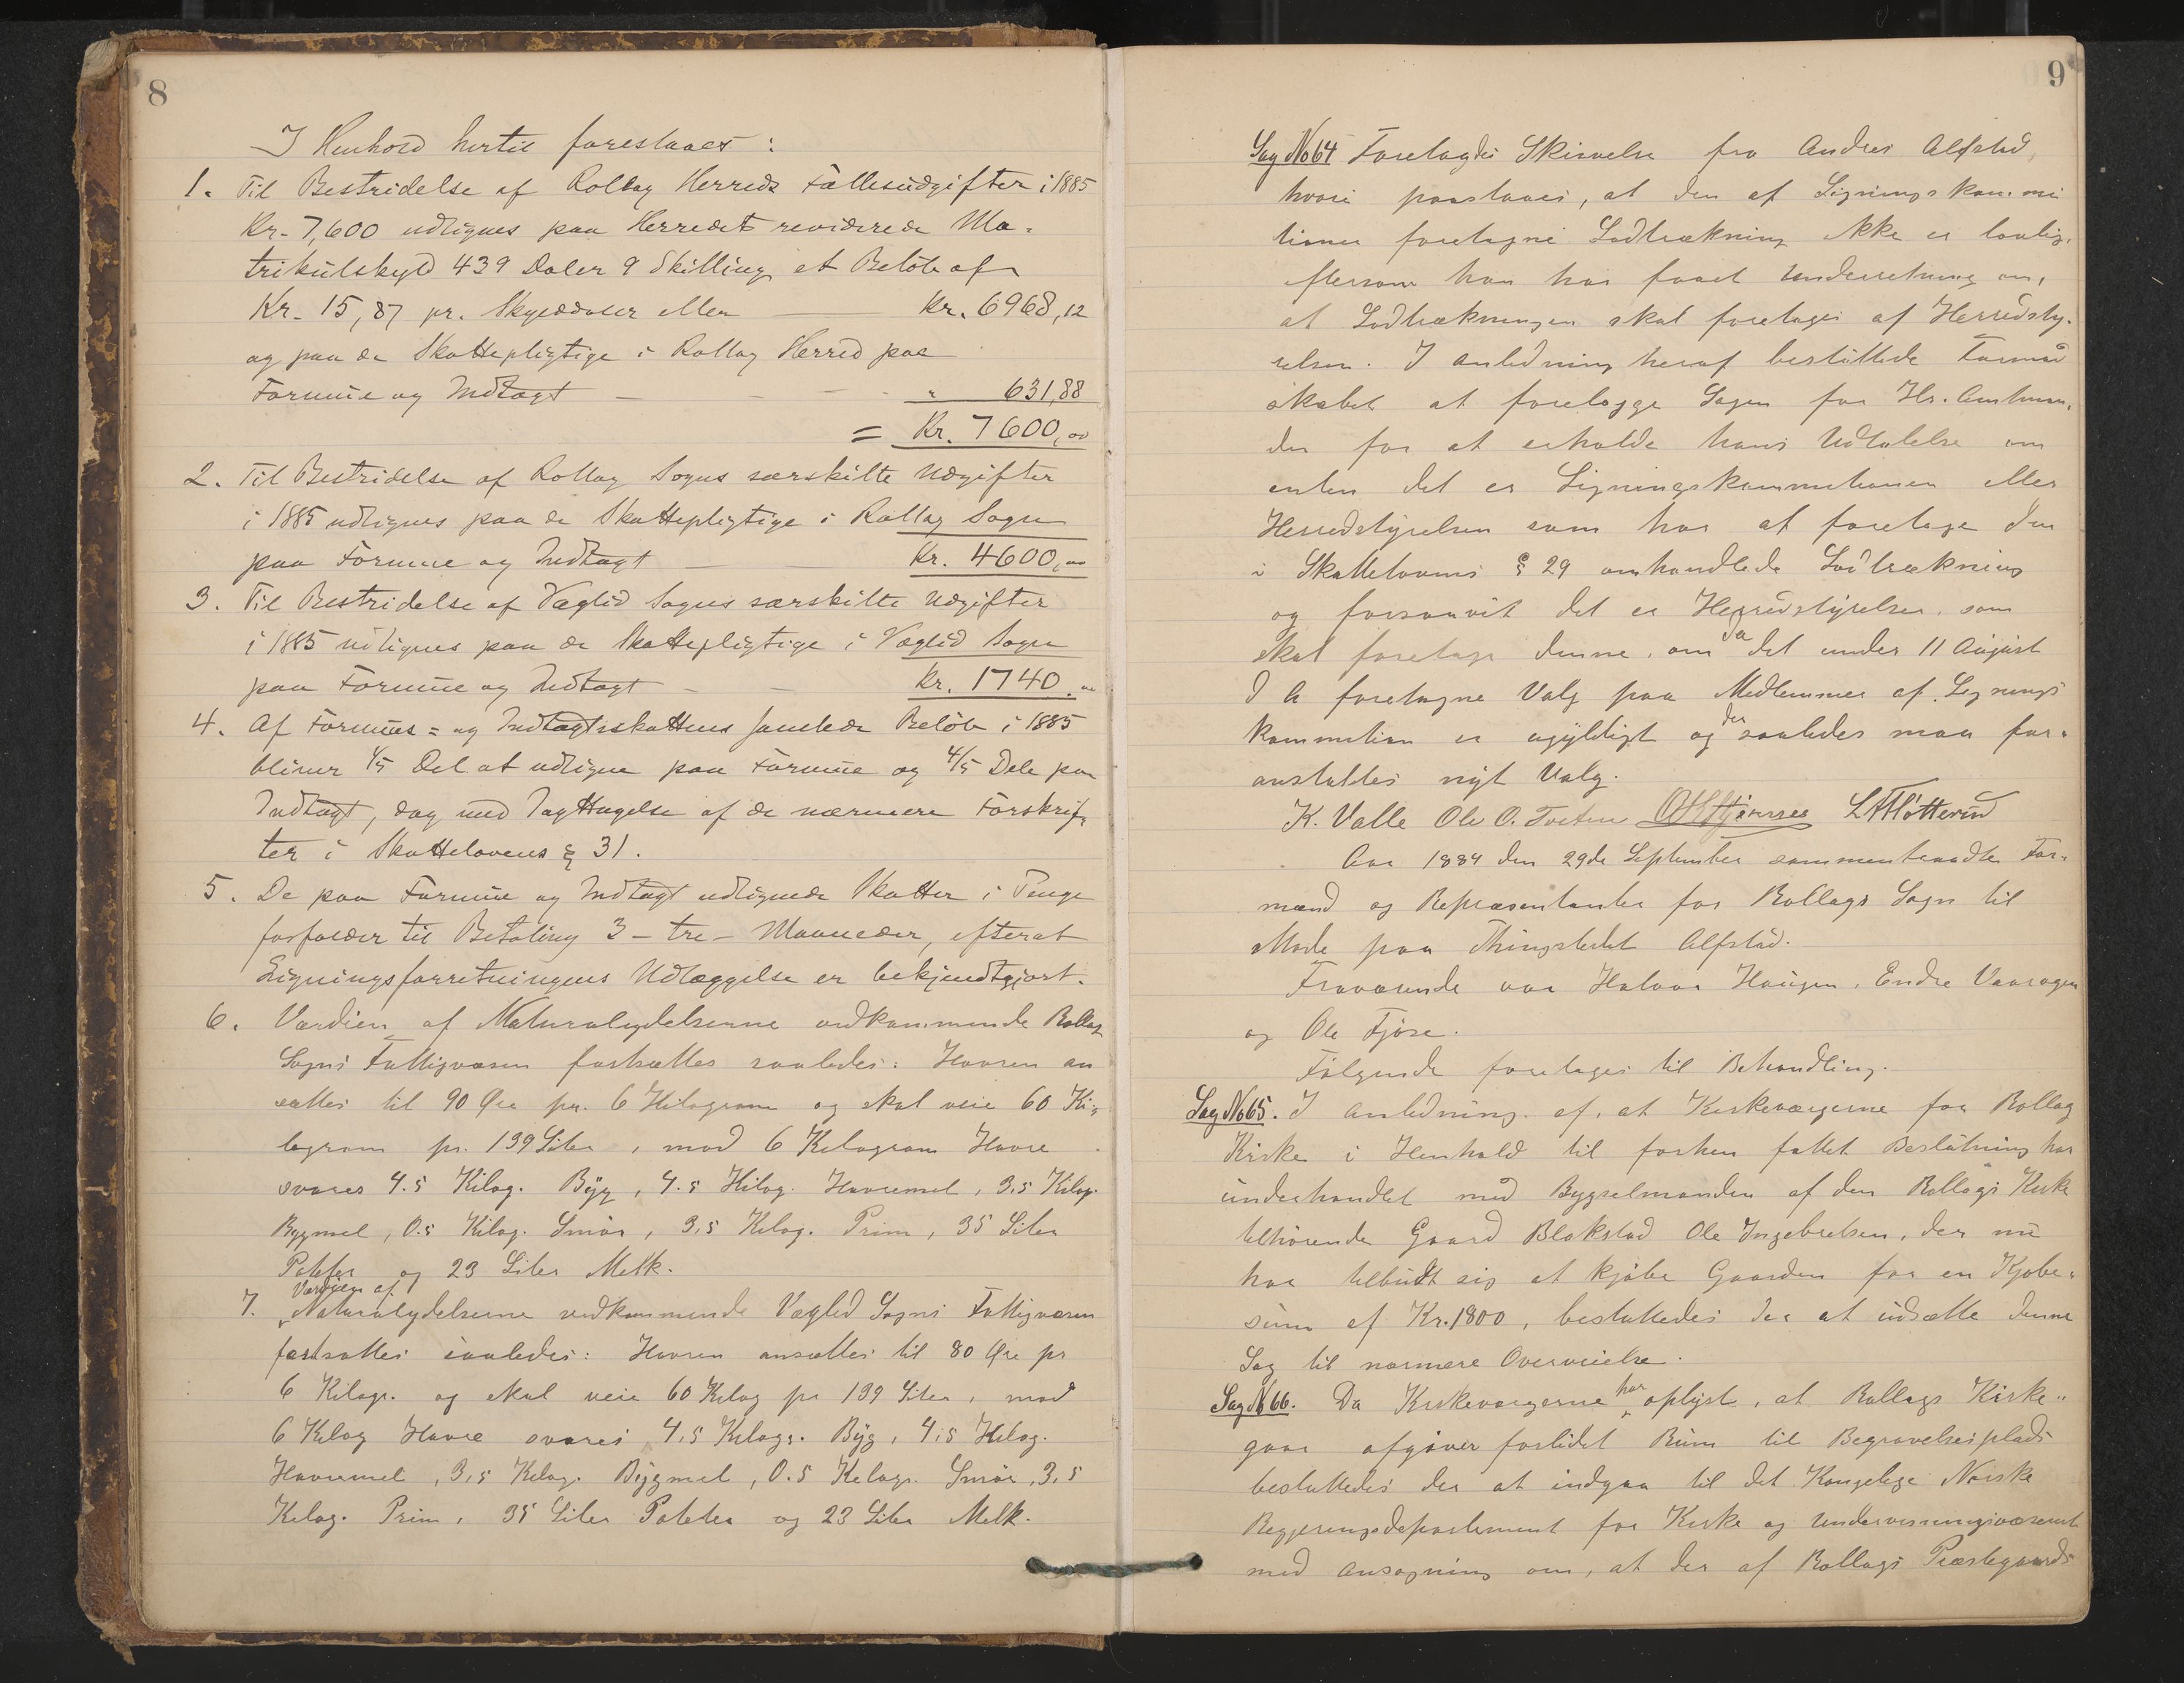 8
I Henhold hertil foreslaaes:
1. Til Bestridelse af Rollag Herreds Fællesudgifter i 1885
Kr. 7,600 udlignes paa Herredets reviderede Ma-
trikulskyld 439 Daler 9 Skilling et Beløb af
Kr. 15,87 pr. Skylddaler eller Kr. 6968,12
og paa de Skattepligtige i Rollag Herred paa
Formue og Indtægt " 631,88
= Kr. 7600,00
2. Til Bestridelse af Rollag Sogns særskilte Udgifter
i 1885 udlignes paa de Skattepligtige i Rollag Sogn
paa Formue og Indtægt Kr. 4600,00
3. Til Bestridelse af Væglid Sogns særskilte Udgifter
i 1885 udlignes paa de Skattepligtige i Væglid Sogn
paa Formue og Indtægt Kr. 1740.00
4. Af Formues= og Indtægtsskattens samlede Beløb i 1885
bliver 1/5 Del at udligne paa Formue og 4/5 Dele paa
Indtægt, dog med Iagttagelse af de nærmere Forskrif-
ter i Skattelovens § 31.
5. De paa Formue og Indtægt udlignede Skatter i Penge
forfalder til Betaling 3 - tre - Maaneder, efterat
Ligningsforretningens Udlæggelse er bekjendtgjort.
6. Værdien af Naturalydelserne vedkommende Rollag
Sogns Fattigvæsen fastsættes saaledes: Havren an
sættes til 90 Øre pr. 6 Kilogram og skal veie 60 Ki-
logram pr. 139 Liter, mod 6 Kilogram Havre
svares 4.5 Kilog. Byg, 4.5 Kilog. Havremel, 3,5 Kilog.
Bygmel, 0.5 Kilog. Smør, 3,5 Kilog. Prim, 35 Liter
Poteter og 23 Liter Melk.
7. Værdien af Naturalydelserne vedkommende Væglid Sogns Fattigvæsen
fastsættes saaledes: Havren ansættes til 80 Øre pr
6 Kilogr. og skal veie 60 Kilog pr 139 Liter, mod
6 Kilog Havre svares 4,5 Kilogr. Byg, 4,5 Kilog.
Havremel, 3,5 Kilog. Bygmel, 0.5 Kilogr. Smør, 3,5
Kilog. Prim, 35 Liter Poteter og 23 Liter Melk.
9
Sag No 64 Foretoges Skrivelse fra Anders Alfstad,
hvori paastaaes, at den af Ligningskommi
tionen foretagne Lodtrækning ikke er lovlig,
eftersom han har faaet Underretning om,
at Lodtrækningen skal foretages af Herredsty-
relsen. I Anledning heraf besluttede Formand
skabet at forelægge Sagen for Hr. Amtman-
den for at erholde hans Udtalelse om
enten det er Ligningskommitionen eller
Herredstyrelsen som har at foretage den
i Skattelovens § 29 omhandlede Lodtrækning
og forsaavit det er Herredstyrelsen, som
skal foretage denne, om da det under 11 August
d A foretagne Valg paa Medlemmer af Lignings
kommition er ugyldigt og der saaledes maa for-
anstaltes nyt Valg.
K. Valle Ole O. Tveten L A Fløtterud
Aar 1884 den 29de September sammentraadte For-
mænd og Repræsentanter for Rollags Sogn til
Møde paa Thingstedet Alfstad.
Fraværende var Halvor Haugen, Endre Vaaragen
og Ole Fjøse.
Følgende foretages til Behandling.
Sag No 65. I Anledning af, at Kirkeværgerne for Rollag
Kirke i Henhold til forhen fattet Beslutning har
underhandlet med Bygselmanden af den Rollags Kirke
tilhørende Gaard Blokstad Ole Ingebretsen, der nu
har tilbudt sig at kjøbe Gaarden for en Kjøbe-
sum af Kr. 1800, besluttedes der at udsætte denne
Sag til nærmere Overveielse.
Sag No 66. Da Kirkeværgerne har oplyst, at Rollags Kirke-
gaar afgiver forlidet Rum til Begravelsesplads
besluttedes der at indgaa til det Kongelige Norske
Regjeringsdepartement for Kirke og Undervisningsvæsenet
med Ansøgning om, at der af Rollags Præstegaards